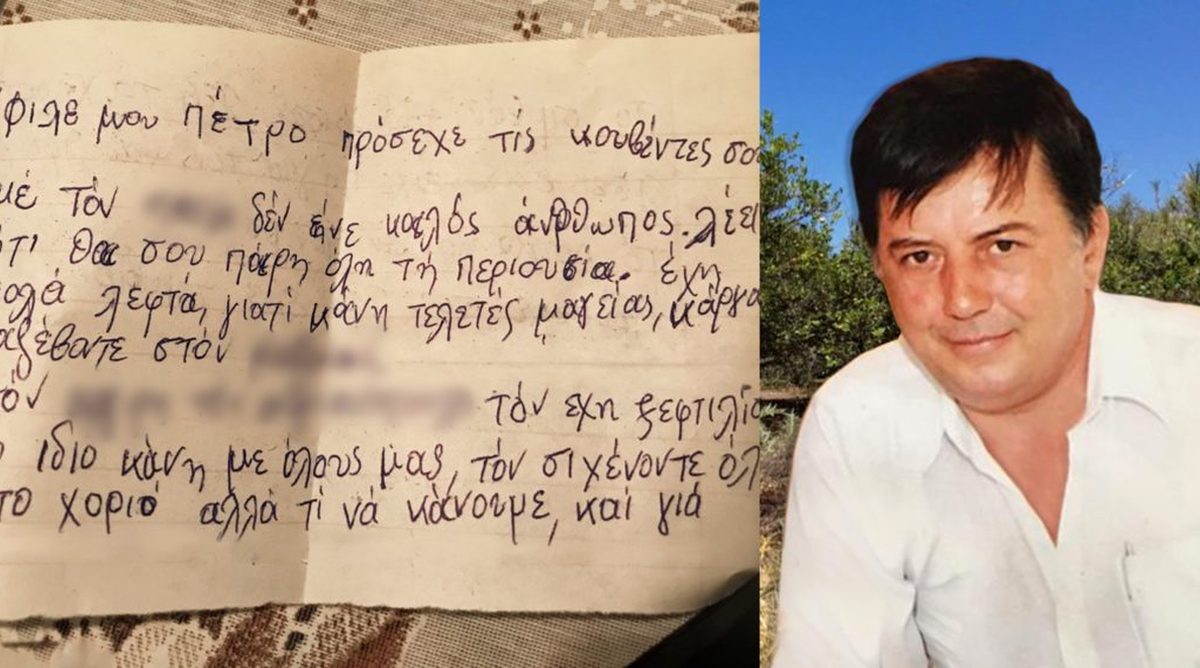 φιλε μου πέτρο πρόσεχε τίς κουβέντες σου
μέ τόν δέν είνε καλός άνρθωπος. λέει
ότι θα σου πάρη όλη τή περιουσία. έχη
πολά λεφτά, γιατί κάνη τελετές μαγείας, κάργα
στόν
τόν τόν εχη ξεφτιλίσ
ιδιο κάνη με όλους μας, τόν σιχένοντε όλ
το χοριό αλλά τί νά κάνουμε, καί γιά